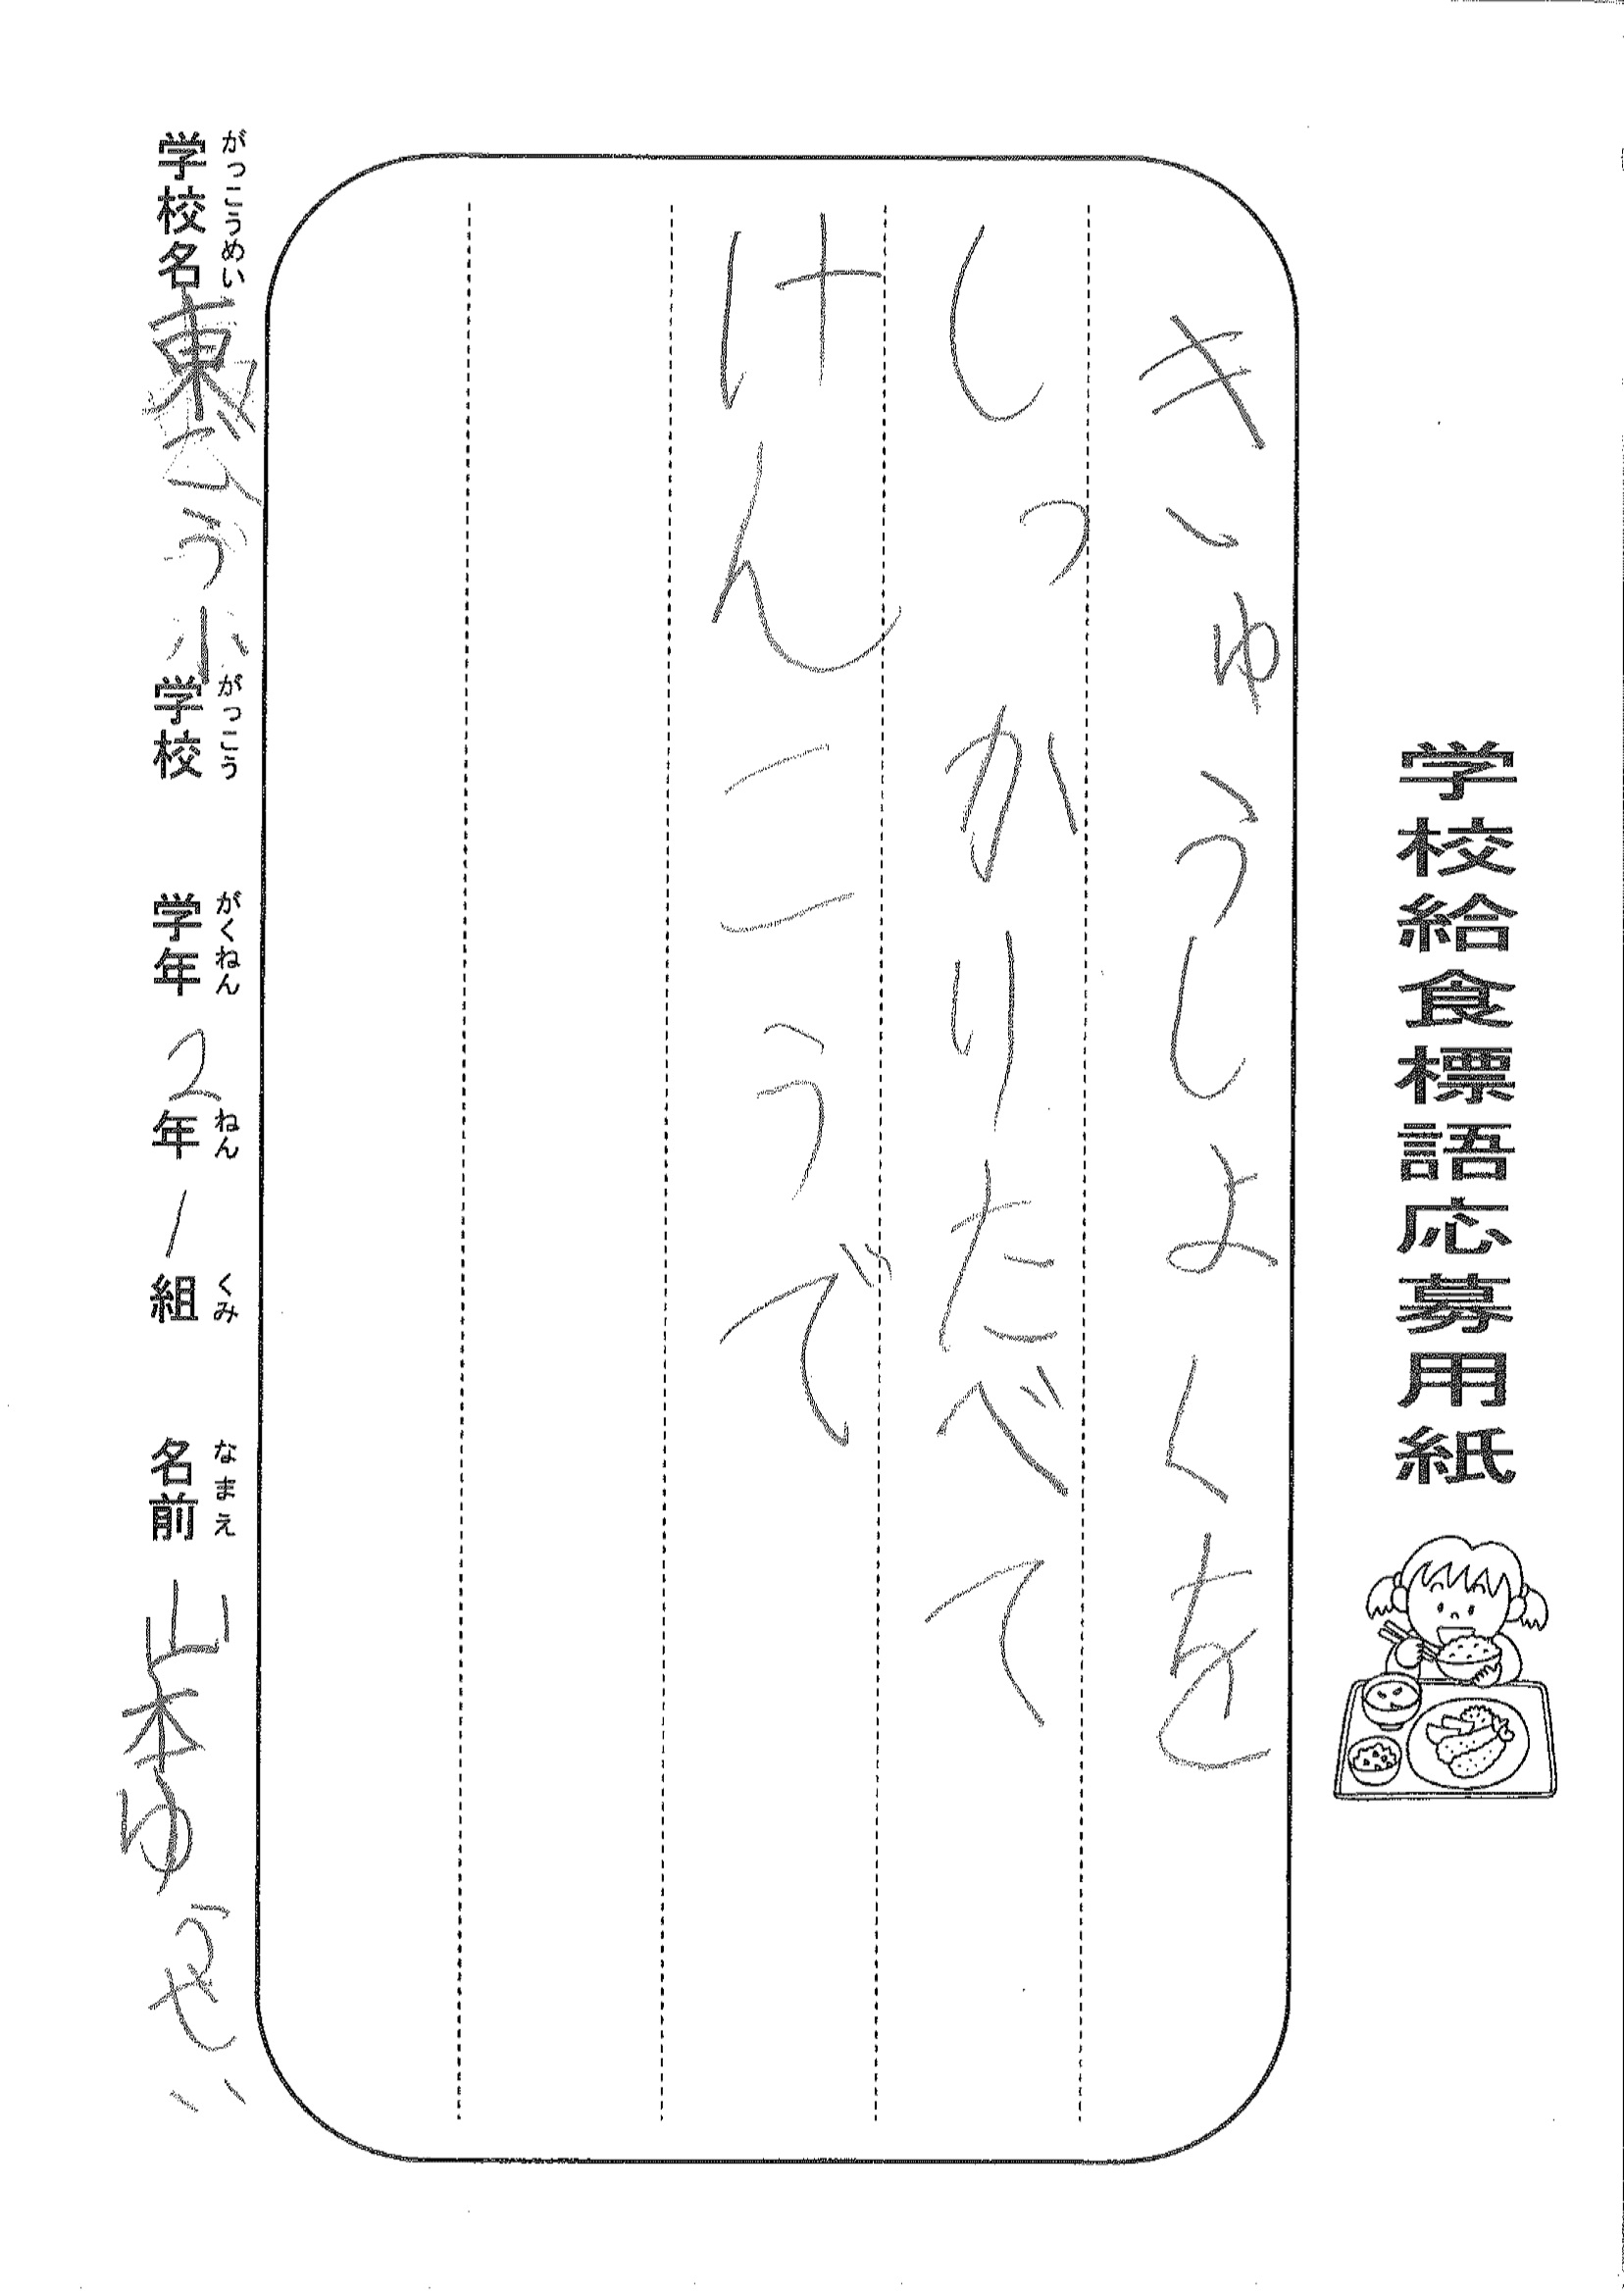 学校給食標語応募用紙
きゅうしょくを
しっかりたべて
けんこうで
がっこうめい がっこう がくねん ねん くみ なまえ
学校名 東 小学校 学年 2年 1組 名前 山本ゆうせい